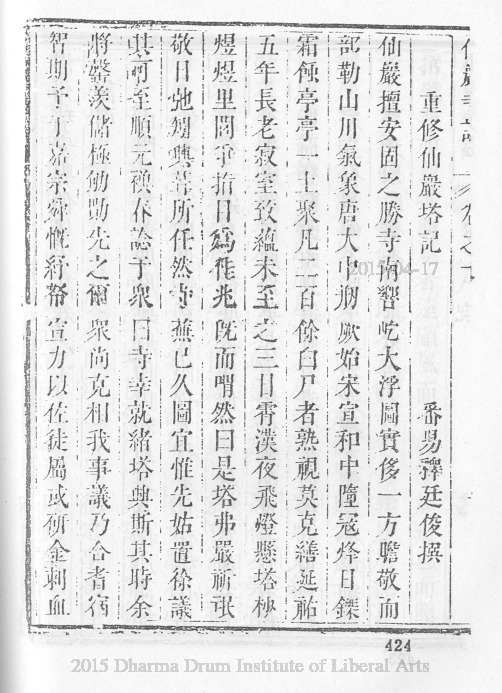 仙巖寺志 卷之下
重修仙巖塔記
番易釋廷俊撰
仙巖擅安固之勝寺南嚮屹大浮圖實侈一方瞻敬而
部勒山川氣象唐大中剏厥始宋宣和中隳冦烽日鑠
霜蝕亭亭一土聚凡二百餘臼尸者熟視莫克繕延祐
五年長老寂室致蘊未至之三日霄漢夜飛燈懸塔杪
煜煜里閭爭指目爲徃兆旣而喟然曰是塔弗嚴祈氓
敬日弛矧興葺所任然寺蕪已久圖宜惟先姑置徐議
其訶至順元禩春諗于衆曰寺幸就緒塔興斯其時余
將罄羡儲極劬勩先之爾衆尚克相我事議乃合耆宿
智期予于嘉宗舜慨紓帑宣力以佐徒屬或硏金刺血
2015-04-17
424
2015 Dharma Drum Institute of Liberal Arts